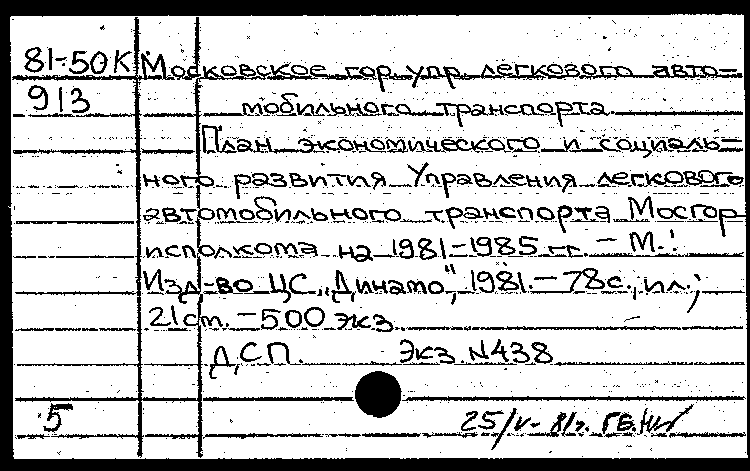 81-50К Московское гор. упр. легкового авто-
913 мобильного транспорта.
План экономического и социаль-
ного развития Управления легкового
автомобильного транспорта Мосгор
исполкома на 1981-1985 гг. - М.:
Изд-во ЦС „Динамо“, 1981. - 78с., ил.;
21 cm. - 500 экз.
Д.С.П. Экз. N438
5 25/V- 81г.